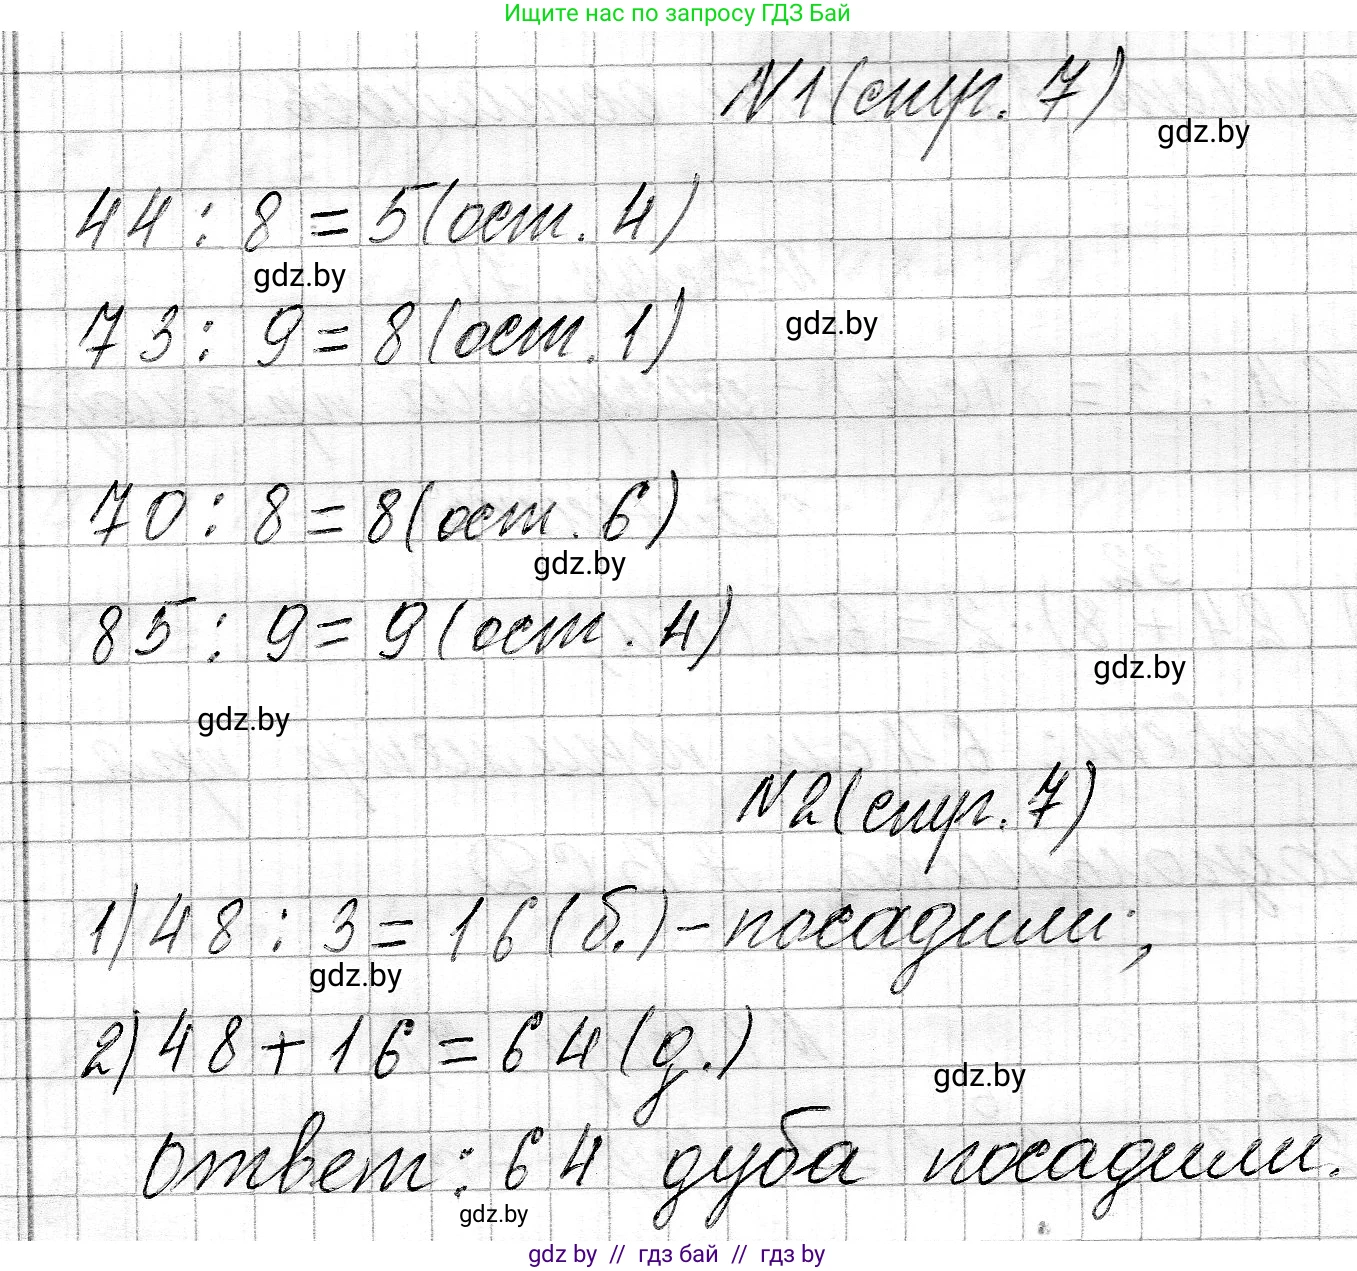 Ищите нас по запросу ГДЗ Бай
N1 (стр. 7)
gdz.by
44 : 8 = 5 (ост. 4)
gdz.by
73 : 9 = 8 (ост. 1)
gdz.by
70 : 8 = 8 (ост. 6)
gdz.by
85 : 9 = 9 (ост. 4)
gdz.by
gdz.by
N2 (стр. 7)
1) 48 : 3 = 16 (б.) - посадили;
gdz.by
2) 48 + 16 = 64 (д.)
gdz.by
Ответ: 64 дуба посадили.
gdz.by
gdz by // гдз бай // гдз by